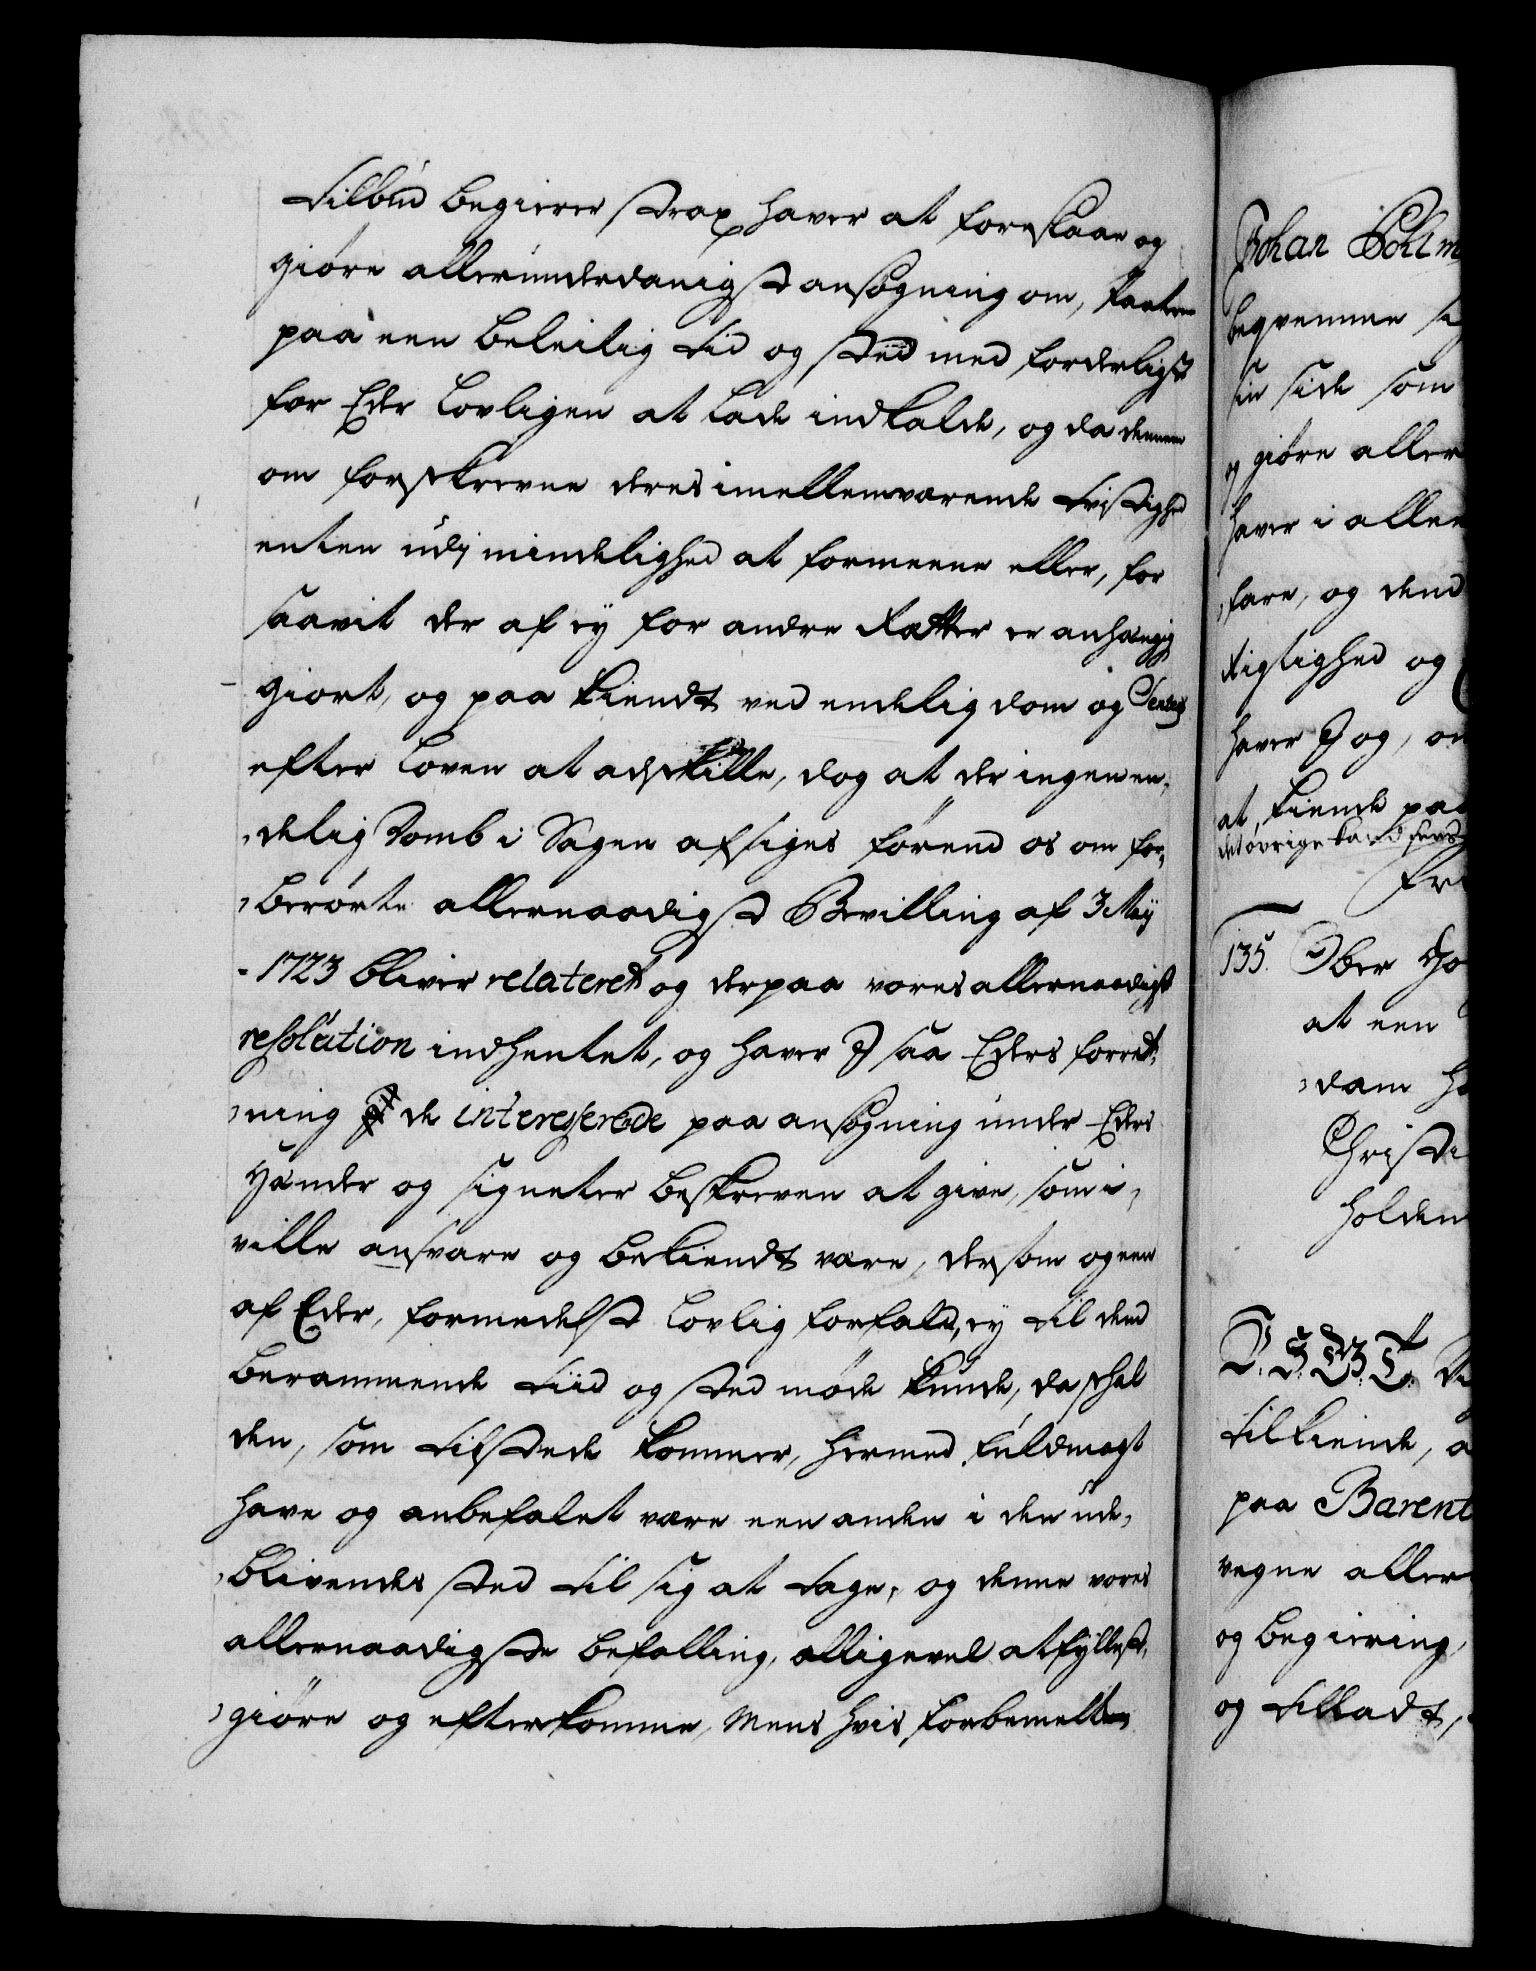 tilbud begierer strax haver at foreslaae og
giøre allerunderdanigst ansøgning om, Parterne
paa een beleilig tid og stæd med forderligst
for Eder lovligen at lade indkalde, og da dennem
om forskrevne deres imellemværende tvistighed
enten udj mindelighed at foreene eller, for
saavit der af ey for andre Rætter er anhængig
giort, og paa kiendt ved endelig dom og Sentens
efter loven at adskille, dog at der ingen en-
delig Domb i Sagen afsiges førend os om for-
berørte allernaadigst Bevilling af 3 Maij
1723 bliver relateret og derpaa vores allernaadigst
resolution indhentet, og haver J saa Eders forret-
ning de interesserede paa ansøgning under Eders
Hænder og signeter beskreven at give, som i
ville ansvare og bekiendt være, dersom og een
af Eder, formedelst lovlig forfald, ey til dend
berammende tiid og sted møde kunde, da skal
den, som tilstede kommer, hermed fuldmagt
have og anbefalet være een anden i den ude-
blivendes sted til sig at tage, og denne vores
allernaadigste befalling, alligevel at fyllest-
giøre og efterkomme, Mens hvis forbemelte
Johan Pohlm
beqvemme si
sin side som
og giøre aller
haver i aller
fare, og dend
Rigtighed og
haver J og, om
at kiende paa
det øvrige
Fri
135. Ober Ho
at een
dam ho
Christi
holden
D. S. G. T. 
tilkiende, a
paa Barent
vegne aller
og begiering,
og tilladt,